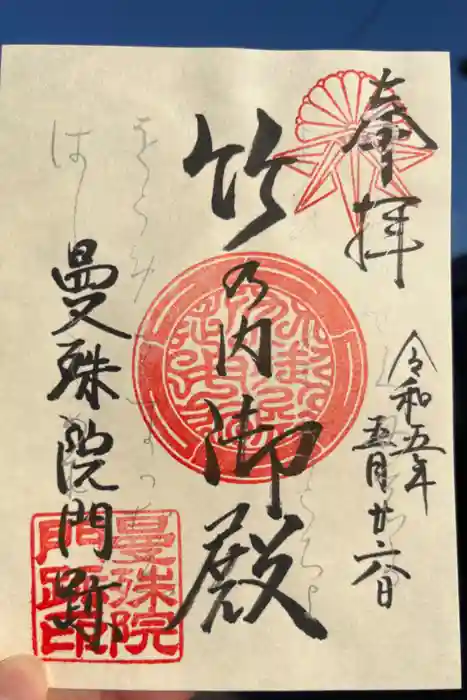 奉拝
令和五年
五月廿六日
竹の内御殿
曼殊院門跡
曼殊院
門跡印